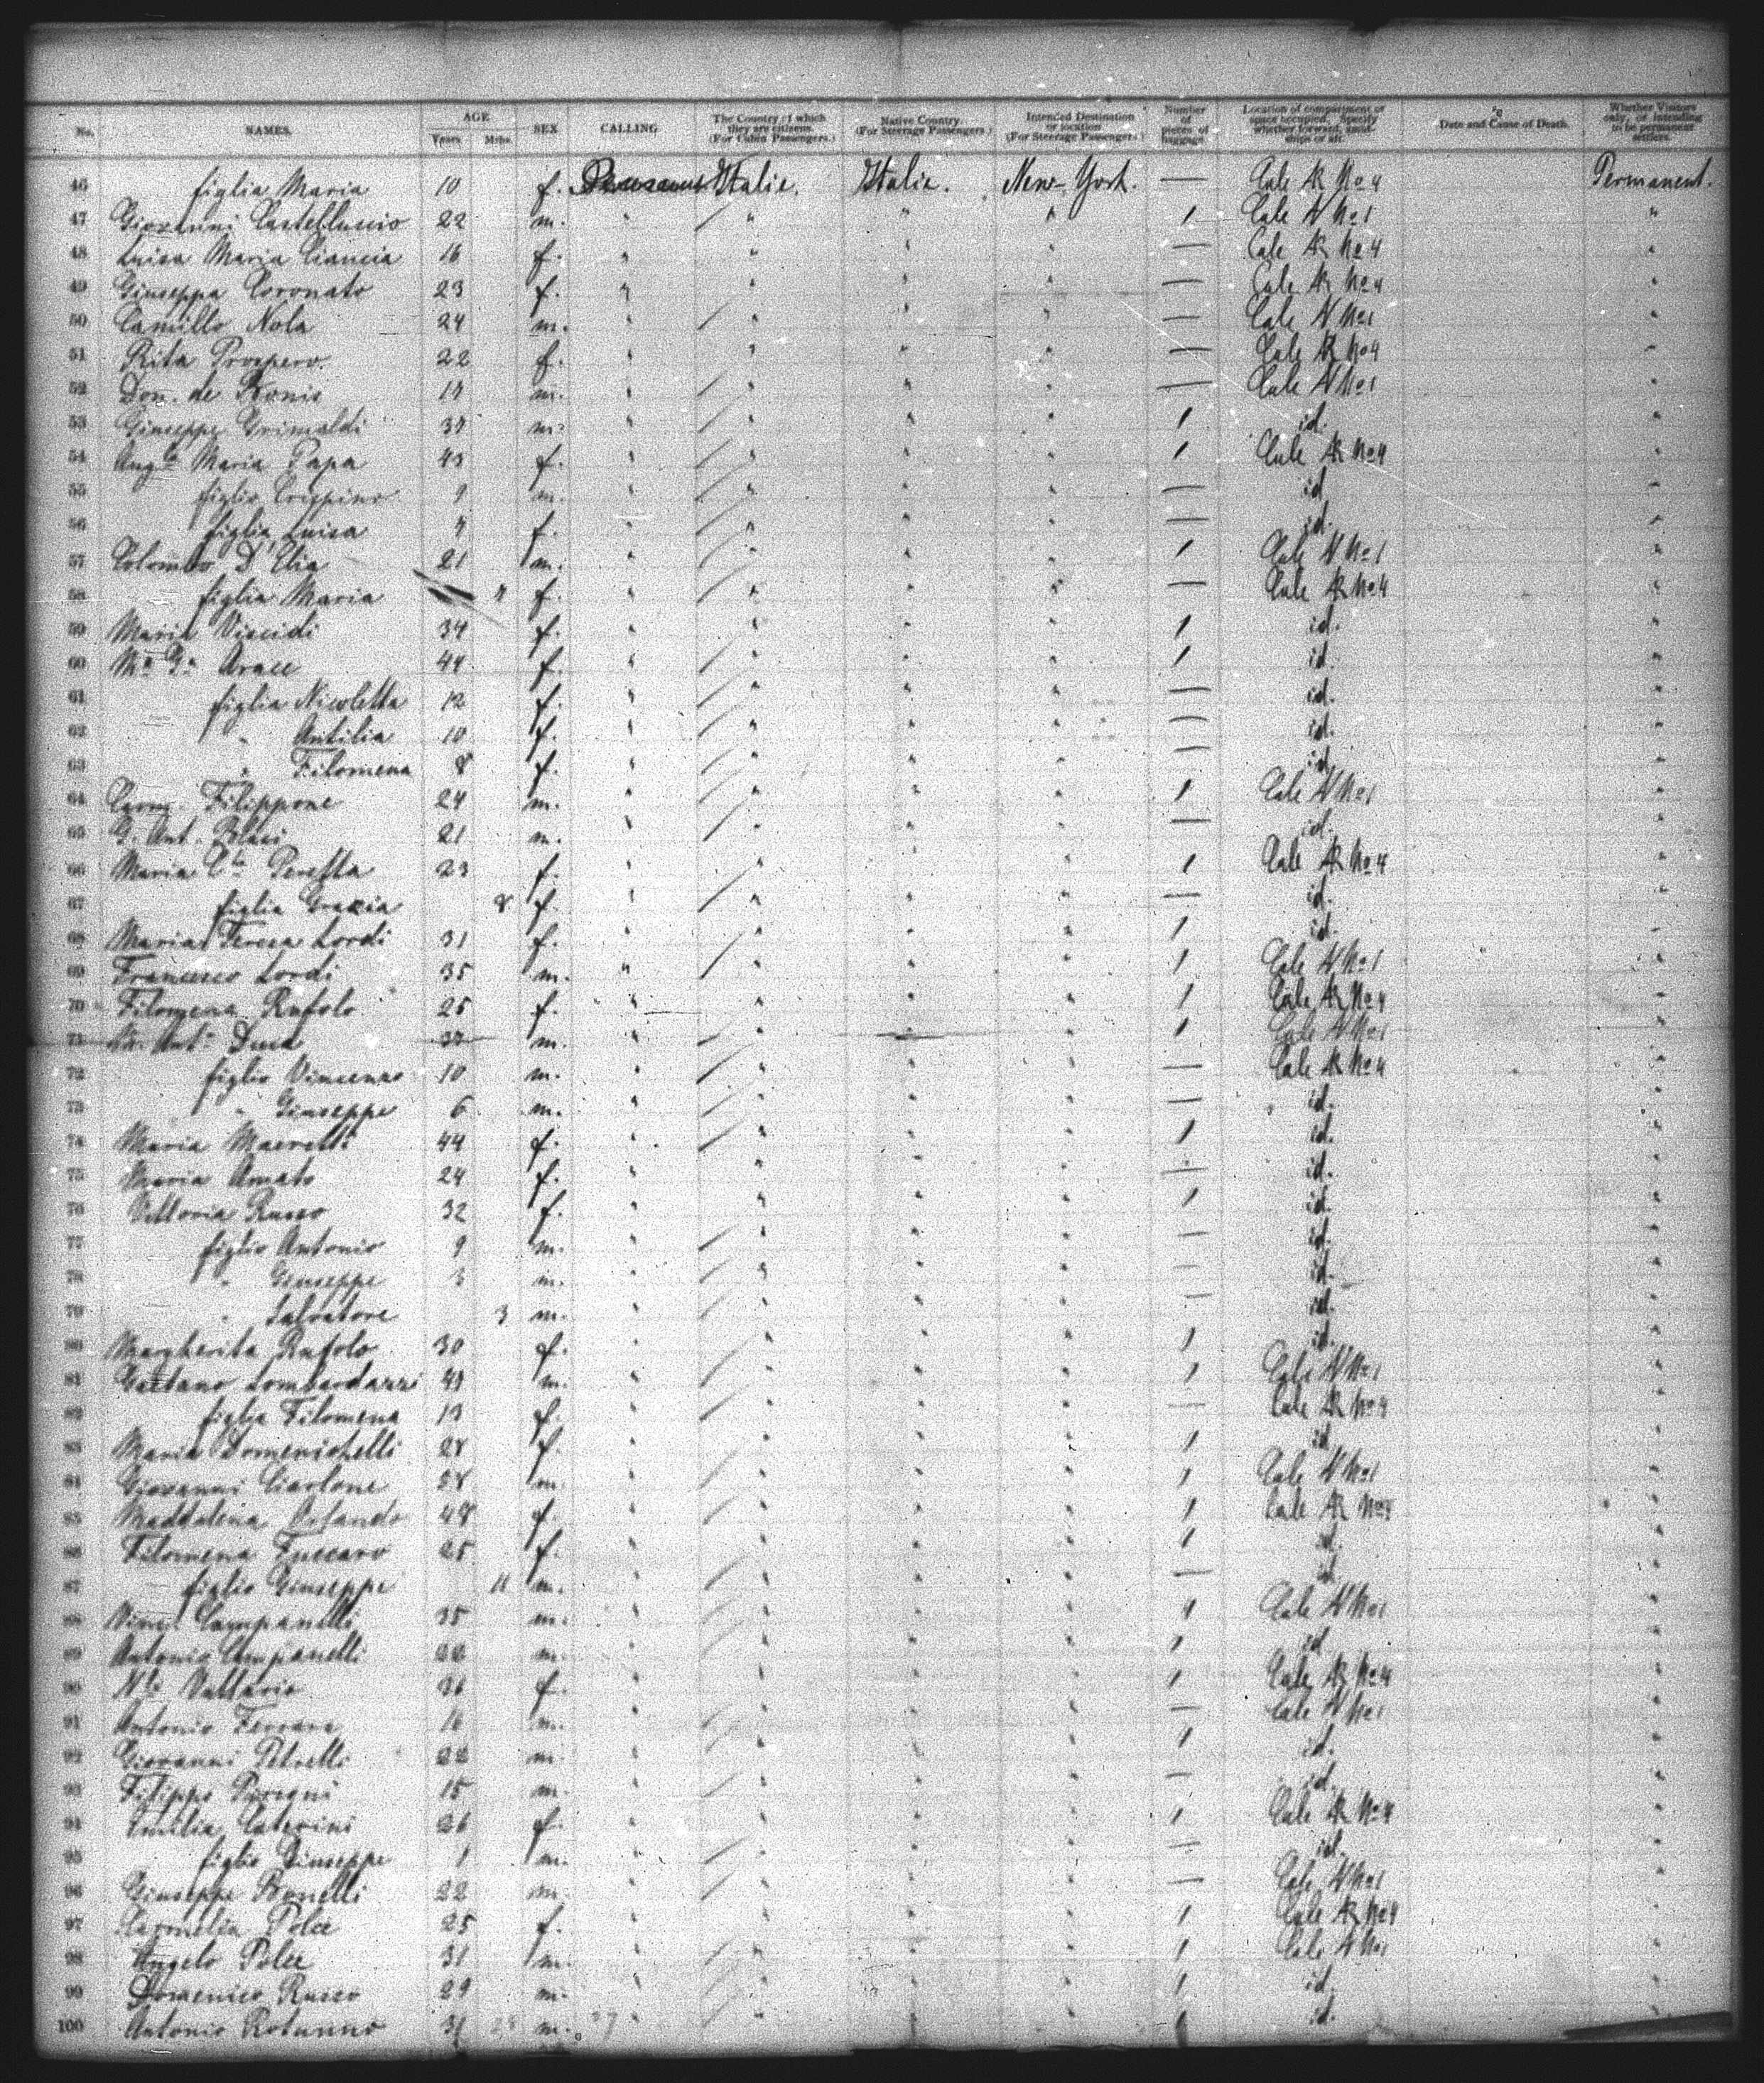 No. NAMES. AGE Years Mths. SEX CALLING The Country of which they are citizens. (For Cabin Passengers.) Native Country. (For Steerage Passengers.) Intended Destination or location (For Steerage Passengers.) Number of pieces of baggage Location of compartment or space occupied. Specify whether forward, amidships or aft. Date and Cause of Death. Whether Visitors only, or intending to be permanent settlers.
46 figlia Maria 10 f. Italie. Italie. New-York. — Cale AR No 4 Permanent.
47 Giovanni Castelluccio 22 m. " " " 1 Cale N No 1 "
48 Luisa Maria Ciancia 16 f. " " " — Cale AR No 4 "
49 Giuseppa Coronato 23 f. " " " — Cale AR No 4 "
50 Camillo Nola 24 m. " " " — Cale N No 1 "
51 Rita Prospero. 22 f. " " " — Cale AR No 4 "
52 Don. de Bonis m. " " " — Cale N No 1 "
53 Giuseppe Grimaldi m. " " " 1 id. "
54 Maria Papa f. " " " 1 Cale AR No 4 "
55 figlio Crispino 9 m. " " " — id. "
56 figlia Luisa f. " " " — id. "
57 Colombo D'Elia 21 m. " " " 1 Cale N No 1 "
58 figlia Maria f. " " " — Cale AR No 4 "
59 Maria Viscidi 34 f. " " " 1 id. "
60 Ma Ga Arace 44 f. " " " 1 id. "
61 figlia Nicoletta 12 f. " " " — id. "
62 " Antilia 10 f. " " " — id. "
63 " Filomena 8 f. " " " — id. "
64 Carm. Filippone 24 m. " " " 1 Cale N No 1 "
65 G. Ant. Blasi 21 m. " " " — id. "
66 Maria Peretta 23 f. " " " 1 Cale AR No 4 "
67 figlia Grazia 8 f. " " " — id. "
68 Maria Teresa Lordi 31 f. " " " 1 id. "
69 Francesco Lordi 35 m. " " " 1 Cale N No 1 "
70 Filomena Rufolo 25 f. " " " 1 Cale AR No 4 "
71 Duca m. " " " 1 Cale N No 1 "
72 figlio Vincenzo 10 m. " " " — Cale AR No 4 "
73 " Giuseppe 6 m. " " " — id. "
74 Maria 44 f. " " " 1 id. "
75 Maria Amato 24 f. " " " — id. "
76 Vittoria Russo 32 f. " " " 1 id. "
77 figlio Antonio 9 m. " " " — id. "
78 " Giuseppe 3 m. " " " — id. "
79 " Salvatore 3 m. " " " — id. "
80 Margherita Rufolo 30 f. " " " 1 id. "
81 Gaetano Lombardazzi m. " " " 1 Cale N No 1 "
82 figlia Filomena 13 f. " " " — Cale AR No 4 "
83 Maria Domenichelli 28 f. " " " 1 id. "
84 Giovanni Ciarlone 28 m. " " " 1 Cale N No 1 "
85 Maddalena Orlando 48 f. " " " 1 Cale AR No 4 "
86 Filomena Fuccaro 25 f. " " " 1 id. "
87 figlio Giuseppe 11 m. " " " — id. "
88 Campanelli 35 m. " " " Cale N No 1 "
89 Antonio Campanelli 22 m. " " " 1 id. "
90 Vallario f. " " " 1 Cale AR No 4 "
91 Antonio Ferrara 16 m. " " " — Cale N No 1 "
92 Giovanni Petrelli 22 m. " " " 1 id. "
93 Filippo 15 m. " " " — id. "
94 Emilia Caterini 26 f. " " " 1 Cale AR No 4 "
95 figlio Giuseppe 1 m. " " " — id. "
96 Giuseppe Bonelli 22 m. " " " — Cale N No 1 "
97 Carmelia Polce 25 f. " " " 1 Cale AR No 4 "
98 Angelo Polce 31 m. " " " 1 Cale N No 1 "
99 Domenico Russo 29 m. " " " 1 id. "
100 Antonio Rotunno 31 m. " " " 1 id. "